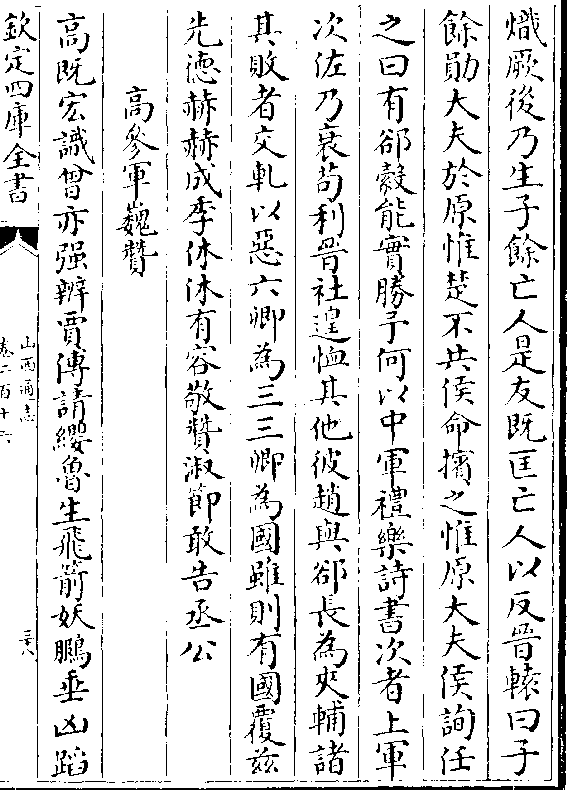 熾厥後乃生子餘亡人是友既匡亡人以反晉轅曰子
餘勛大夫於原惟楚不共侯命擯之惟原大夫侯詢任
之曰有郤縠能實勝予何以中軍禮樂詩書次者上軍
次佐乃衰苟利晉社遑恤其他彼趙與郤長為夾輔諸
其敗者交軋以惡六卿為三三卿為國雖則有國覆茲
先德赫赫成季休休有容敬贊淑節敢告丞公
高參軍巍贊
高既宏識曾亦强辨賈傳請纓魯生飛箭妖鵬垂凶蹈
欽定四庫全書
山西通志
卷二百十六
三八